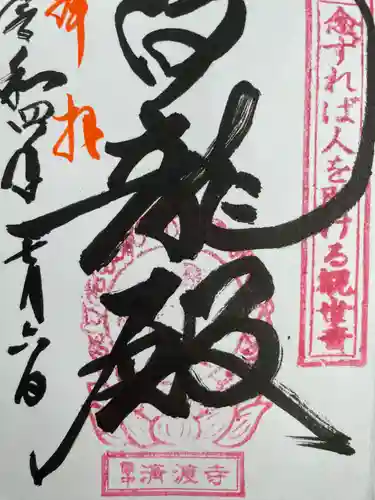 念ずれば人を助ける観世音
白龍殿
奉拝
令和四年
七月六日
満渡寺